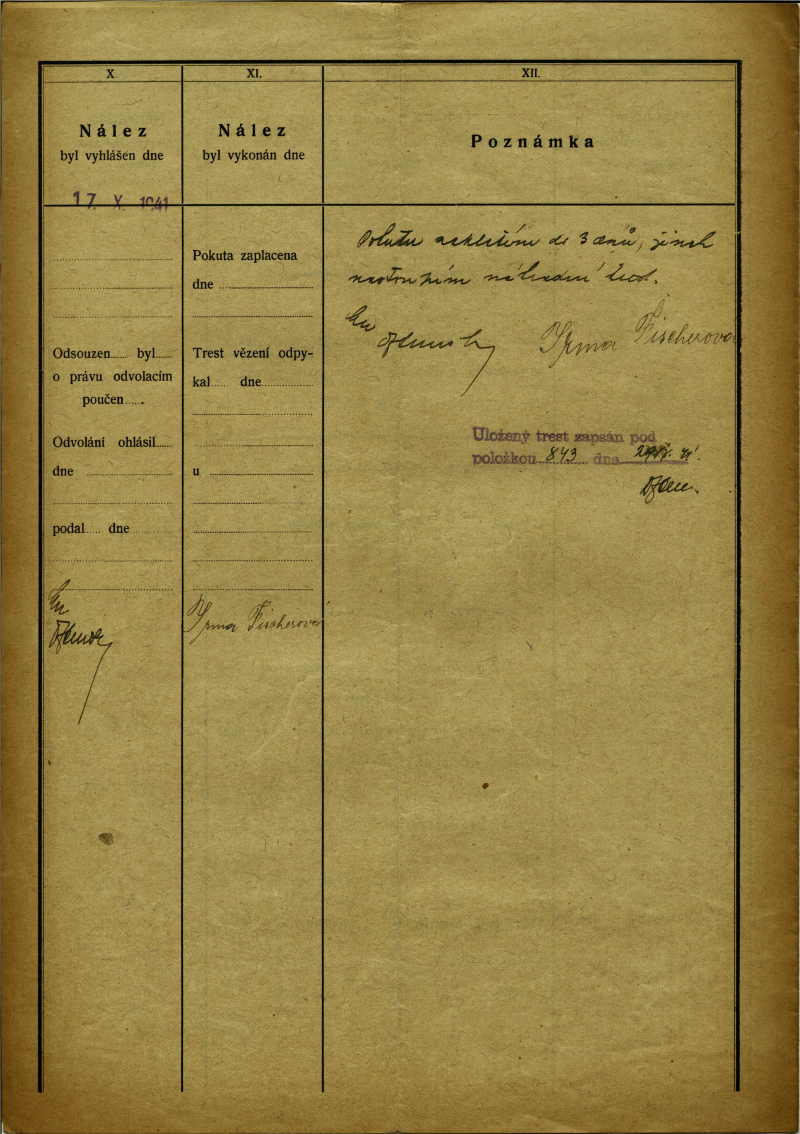 X
Nález
byl vyhlášen dne
17. X. 1941
Odsouzen...... byl......
o právu odvolacím
poučen......
Odvolání ohlásil......
dne
podal..... dne
XI.
Nález
byl vykonán dne
Pokuta zaplacena
dne
Trest vězení odpy-
kal..... dne
u
Irma Fischerová
XII.
Poznámka
Pokutu zaplatím do 3 dnů, jinak
nastoupím náhradní trest.
Irma Fischerová
Uložený trest zapsán pod
položkou 843 dne